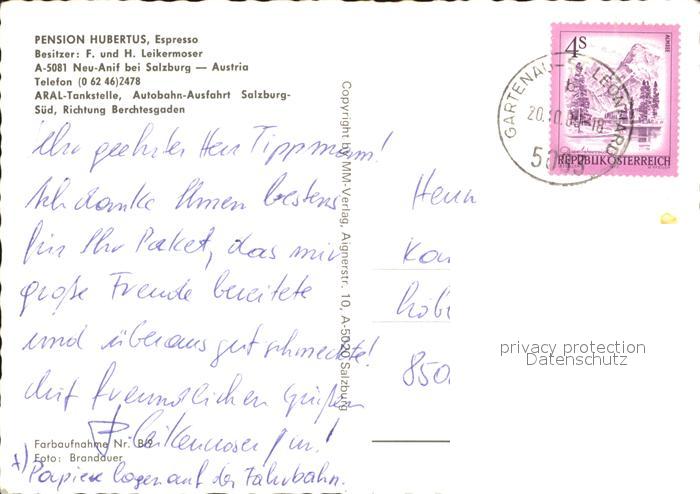 PENSION HUBERTUS, Espresso
Besitzer: F. und H. Leikermoser
A-5081 Neu-Anif bei Salzburg — Austria
Telefon (0 62 46)2478
ARAL-Tankstelle, Autobahn-Ausfahrt Salzburg-
Süd, Richtung Berchtesgaden
geehrter Herr Tippmann!
Ich danke Ihnen bestens
für Ihr Paket, das mir
große Freude bereitete
und überaus gut schmeckte!
Mit freundlichen Grüßen
Leikermoser jun.!
Farbaufnahme Nr. B/9
Foto: Brandauer
Papiere lagen auf der Fahrbahn.
Copyright by MM-Verlag, Aignerstr. 10, A-5020 Salzburg
4s
ALMSEE
REPUBLIK ÖSTERREICH
GARTENAU-ST. LEONHARD
-18
Herrn
850
privacy protection
Datenschutz